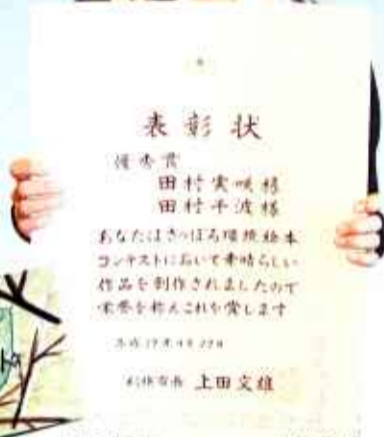 表彰状
優秀賞
田村実咲様
田村千波様
あなたはさっぽろ環境絵本
コンテストにおいて素晴らしい
作品を制作されましたので
栄誉を称えこれを賞します
札幌市長 上田文雄